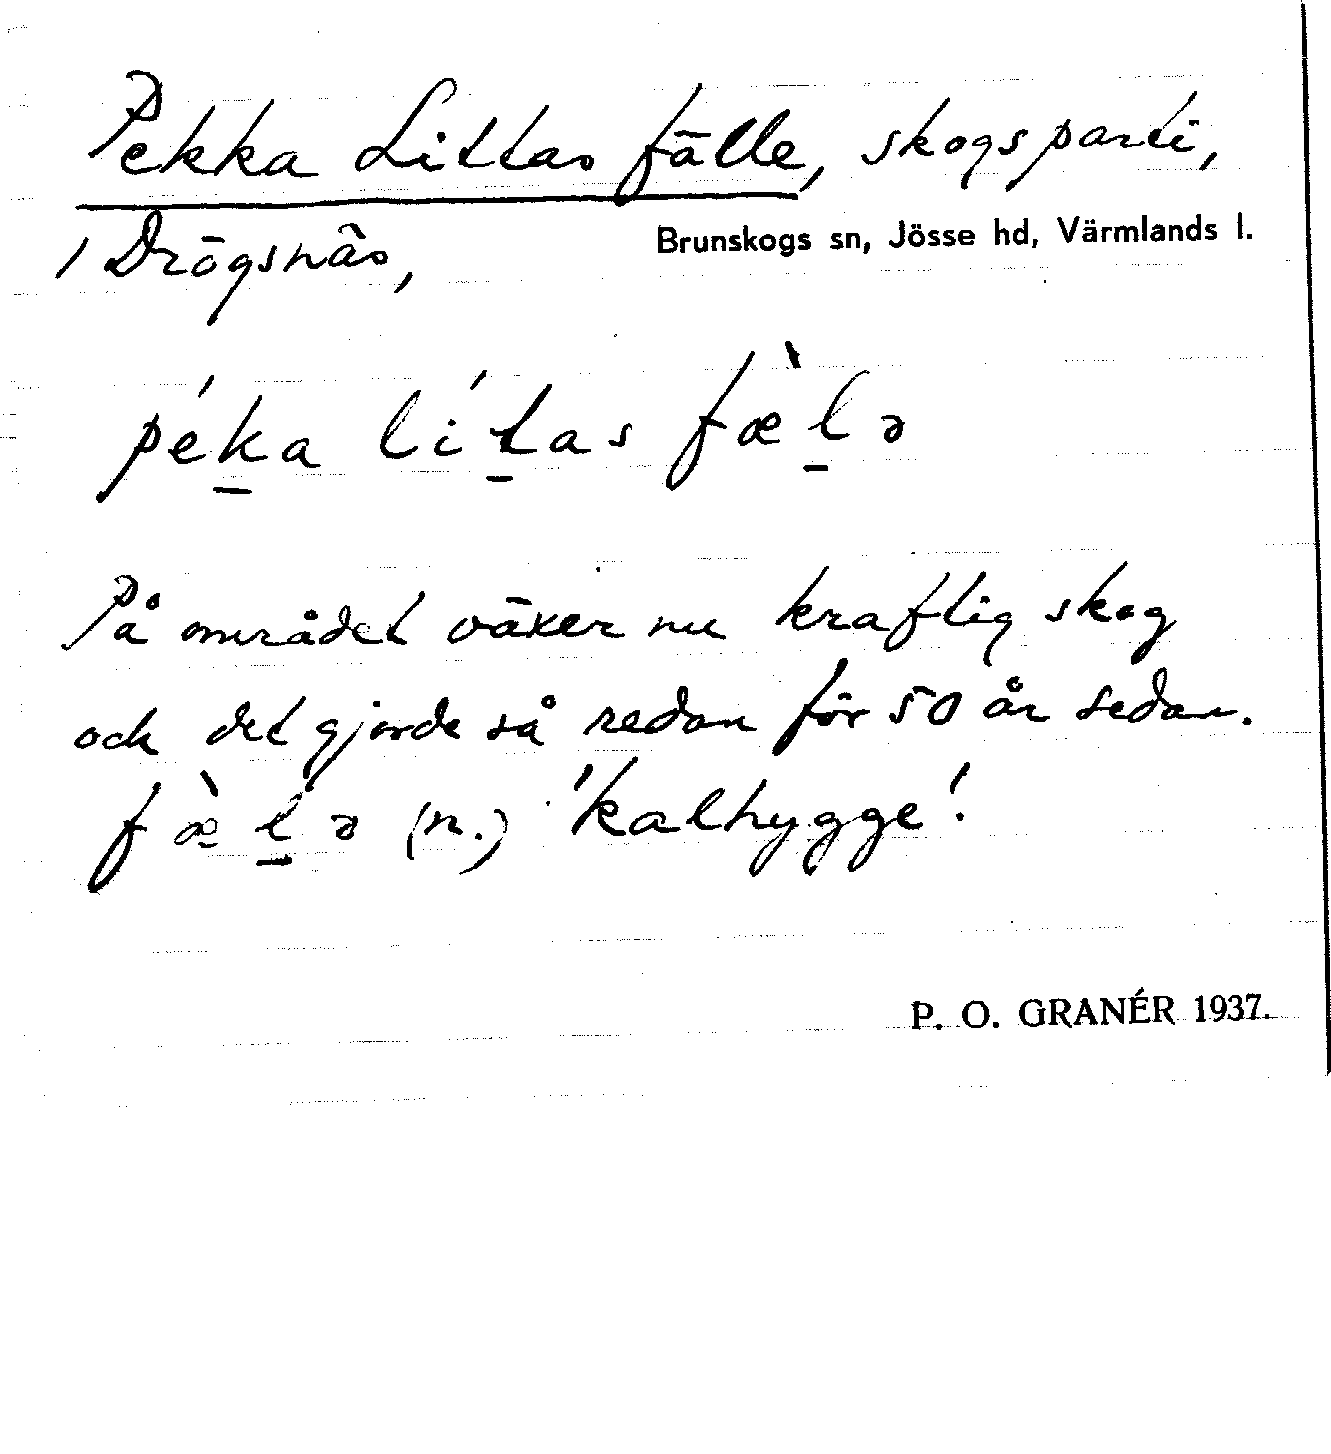 Pekka Littas fälle, skogsparti,
/ Drögsnäs, Brunskogs sn, Jösse hd, Värmlands l.
péḵa líṯas fæ̀ḻə
På området växer nu kraftig skog
och det gjorde så redan för 50 år sedan.
fæ̀ḻə (n.) 'kalhygge'.
P. O. GRANÉR 1937.